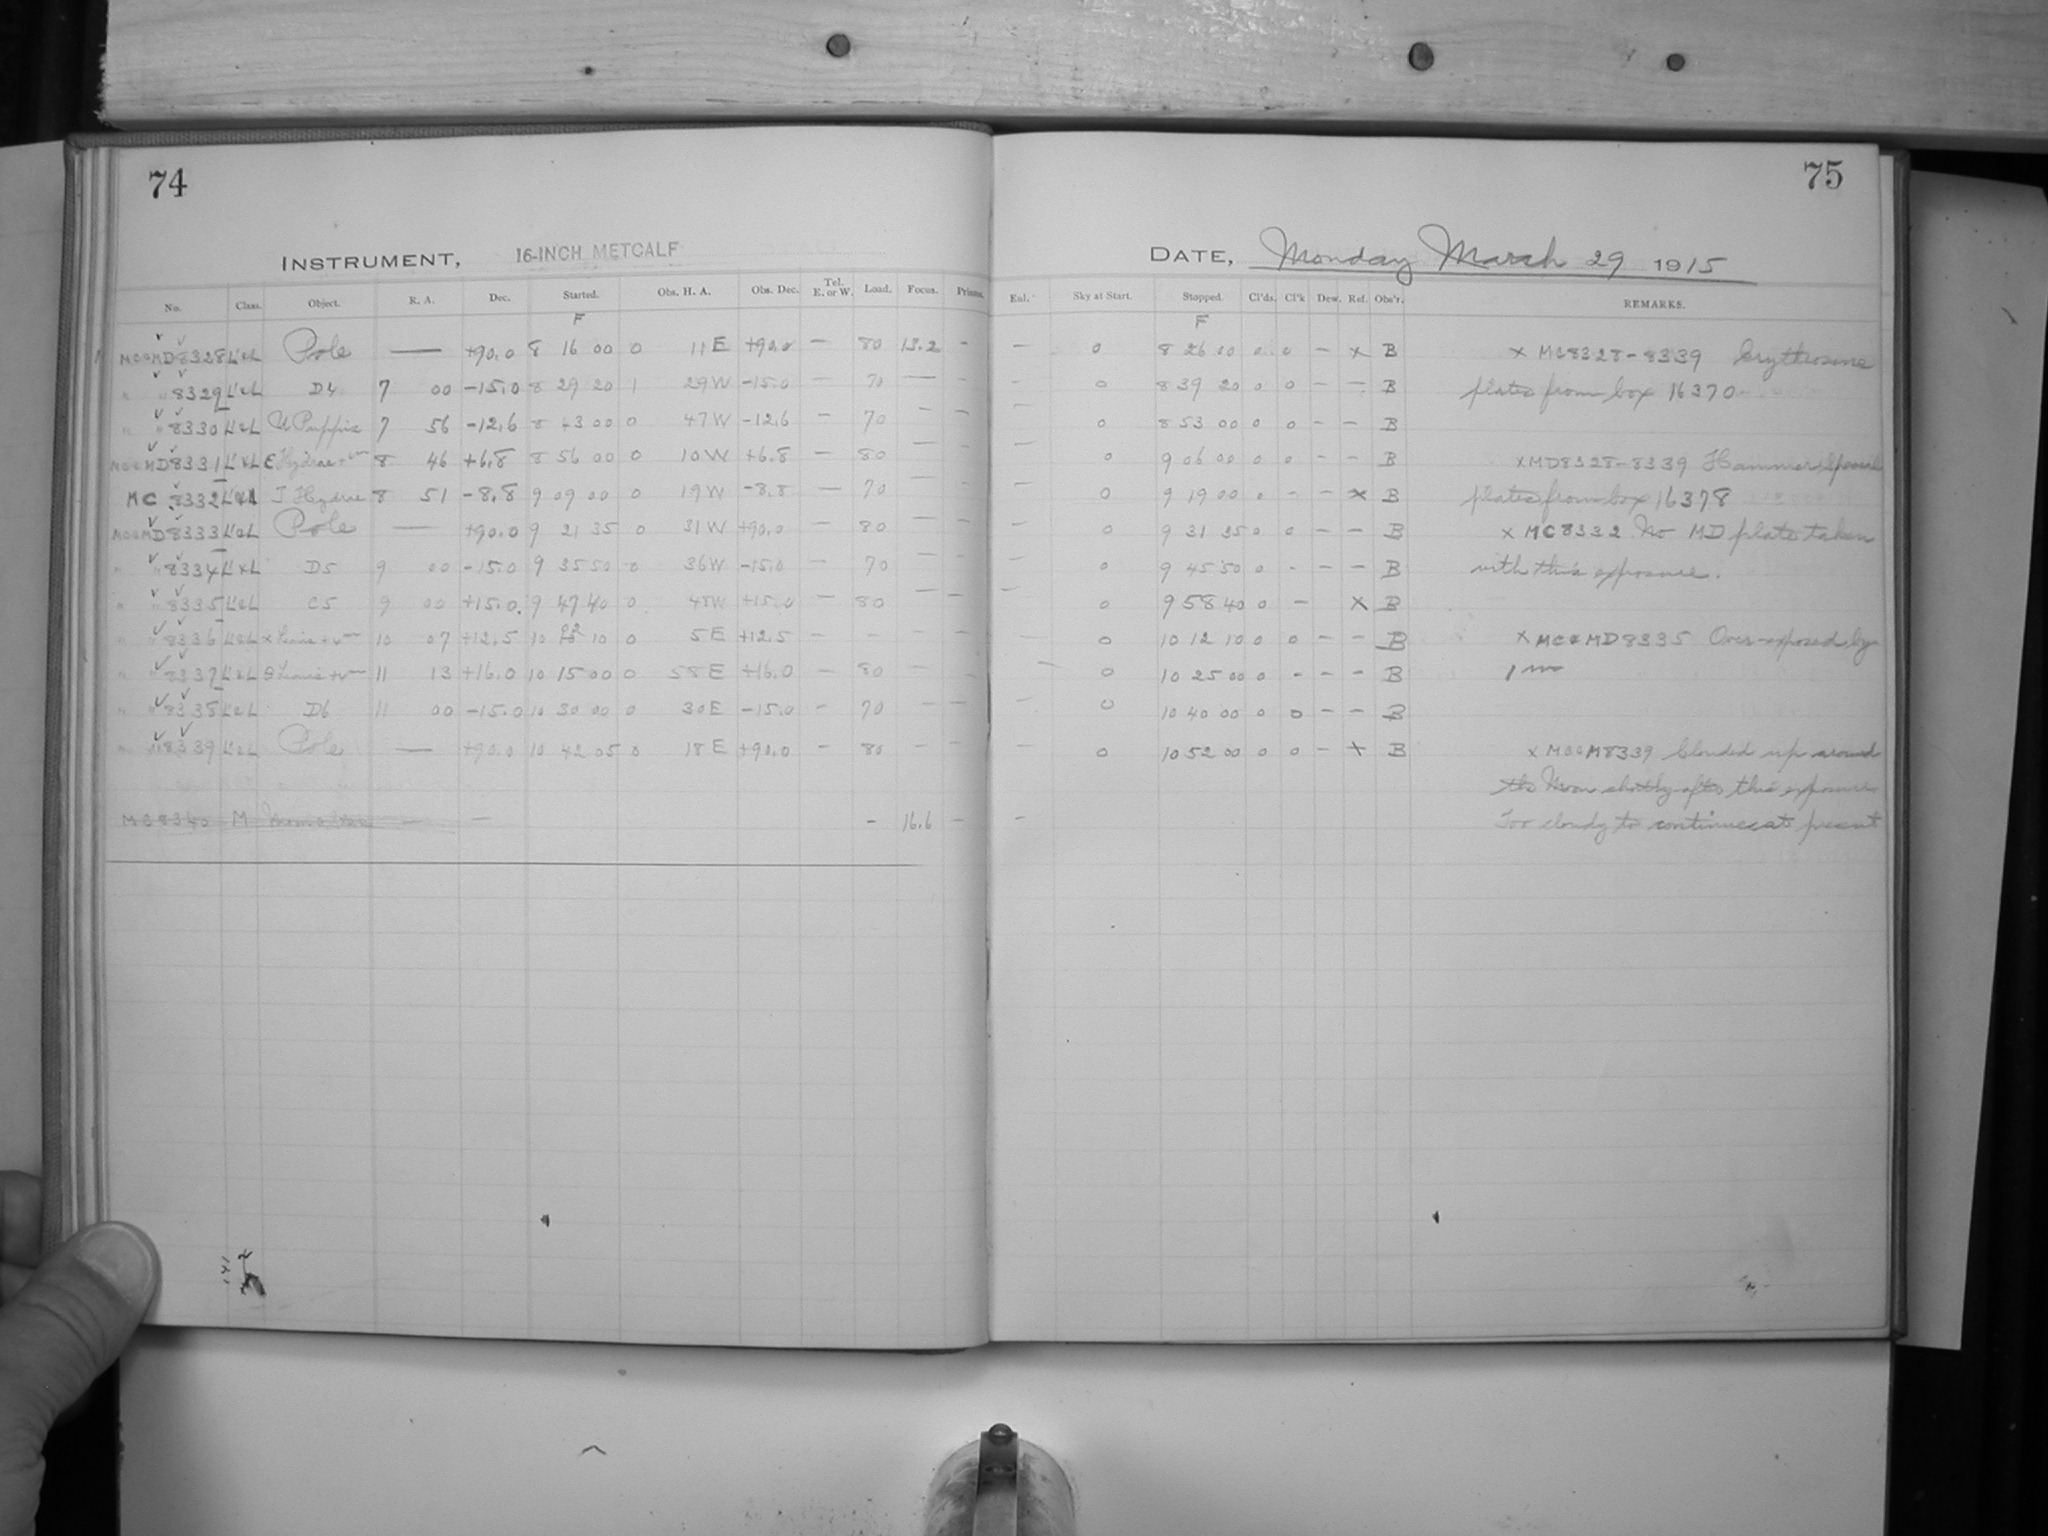 74
INSTRUMENT, 16-INCH METCALF
No. Class. Object. R. A. Dec. Started. Obs. H. A. Obs. Dec. Tel. E. or W. Load. Focus. Prisms.
F
MC&MD8328 L'&L Pole — +90.0 8 16 00 0 11E +90.0 — 80 13.2 —
" " 8329 L'&L D4 7 00 -15.0 8 29 20 1 29W -15.0 — 70 — —
" " 8330 L'&L U Puppis 7 56 -12.6 8 43 00 0 47W -12.6 — 70 — —
MC&MD8331 L'&L E Hydrae + 8 46 +6.8 8 56 00 0 10W +6.8 — 80 — —
MC 8332 L'&L T Hydrae 8 51 -8.8 9 09 00 0 19W -8.8 — 70 — —
MC&MD8333 L'&L Pole — +90.0 9 21 35 0 31W +90.0 — 80 — —
" " 8334 L'&L D5 9 00 -15.0 9 35 50 0 36W -15.0 — 70 — —
" " 8335 L'&L C5 9 00 +15.0 9 47 40 0 48W +15.0 — 80 — —
" " 8336 L'&L 10 07 +12.5 10 02 10 0 5E +12.5 — — — —
" " 8337 L'&L 11 13 +16.0 10 15 00 0 58E +16.0 — 80 — —
" " 8338 L'&L D6 11 00 -15.0 10 30 00 0 30E -15.0 — 70 — —
" " 8339 L'&L Pole — +90.0 10 42 05 0 18E +90.0 — 80 — —
MC8340 M — — - 16.6 —
75
DATE, Monday March 29 1915
Enl. Sky at Start. Stopped. Cl'ds. Cl'k Dew. Ref. Obs'r. REMARKS.
F
— 0 8 26 00 0 0 — x B x MC8328-8339 Erythrosine
— 0 8 39 20 0 0 — — B plates from box 16370
— 0 8 53 00 0 0 — — B
— 0 9 06 00 0 0 — — B x MD8328-8339 Hammer Special
0 9 19 00 0 - — x B plates from box 16378
— 0 9 31 35 0 0 — — B x MC8332 No MD plate taken
— 0 9 45 50 0 - — — B with this exposure.
— 0 9 58 40 0 — x B
0 10 12 10 0 0 — — B x MC&MD8335 Over-exposed by
— 0 10 25 00 0 - — — B 1 m
— 0 10 40 00 0 0 — — B
— 0 10 52 00 0 0 — x B x MC&M8339 Clouded up around
the Moon shortly after this exposure
— Too cloudy to continue at present